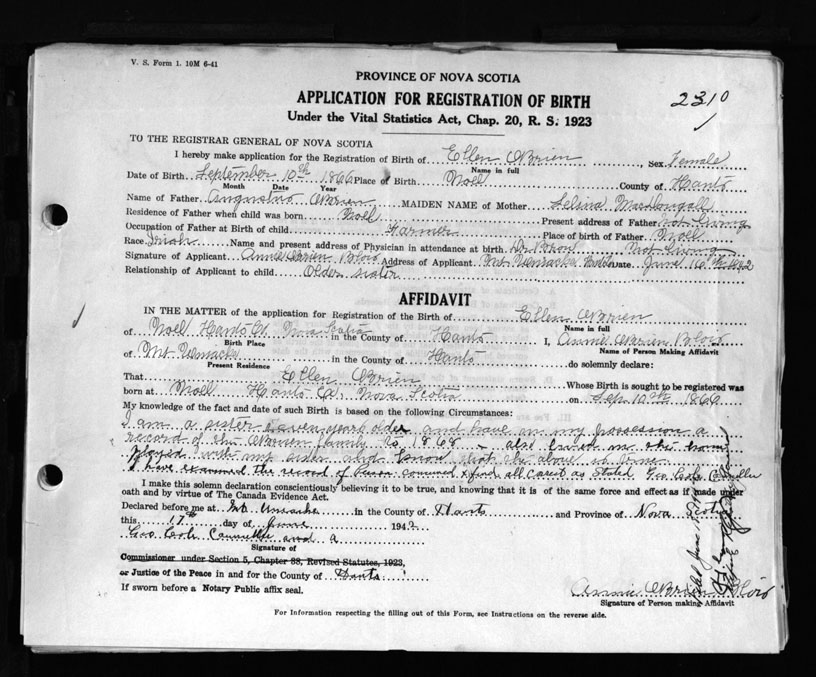 V. S. Form 1. 10M 6-41
PROVINCE OF NOVA SCOTIA
APPLICATION FOR REGISTRATION OF BIRTH
2310
Under the Vital Statistics Act, Chap. 20, R. S. 1923
TO THE REGISTRAR GENERAL OF NOVA SCOTIA
I hereby make application for the Registration of Birth of Ellen O'Brien, Sex Female
Name in full
Date of Birth September 10th 1866 Place of Birth Noel County of Hants
Month Date Year
Name of Father Augustus O'Brien MAIDEN NAME of Mother Selina MacDougall
Residence of Father when child was born Noel Present address of Father Not Living
Occupation of Father at Birth of child Farmer Place of birth of Father Noel
Race Irish Name and present address of Physician in attendance at birth Dr Brown Not Living
Signature of Applicant Annie O'Brien Blois Address of Applicant Mt Uniacke Date June 16th 1942
Relationship of Applicant to child Older sister
AFFIDAVIT
IN THE MATTER of the application for Registration of the Birth of Ellen O'Brien
Name in full
of Noel Hants Co. Nova Scotia in the County of Hants I, Annie O'Brien Blois
Birth Place Name of Person Making Affidavit
of Mt Uniacke in the County of Hants do solemnly declare:
Present Residence
That Ellen O'Brien Whose Birth is sought to be registered was
born at Noel Hants Co. Nova Scotia on Sep 10th 1866
My knowledge of the fact and date of such Birth is based on the following Circumstances:
I am a sister seven years older and have in my possession a
record of the O'Brien family to 1868 also lived in the home
played with my sister and know that the above is true
I have examined the record of Person concerned & find all correct as Stated Geo Cole Councillor
I make this solemn declaration conscientiously believing it to be true, and knowing that it is of the same force and effect as if made under
oath and by virtue of The Canada Evidence Act.
Declared before me at Mt Uniacke in the County of Hants and Province of Nova Scotia
this 17th day of June 1942
Geo Cole Councillor and a
Signature of
Commissioner under Section 5, Chapter 38, Revised Statutes, 1923,
or Justice of the Peace in and for the County of Hants
If sworn before a Notary Public affix seal.
Annie O'Brien Blois
Signature of Person making Affidavit
For Information respecting the filling out of this Form, see Instructions on the reverse side.